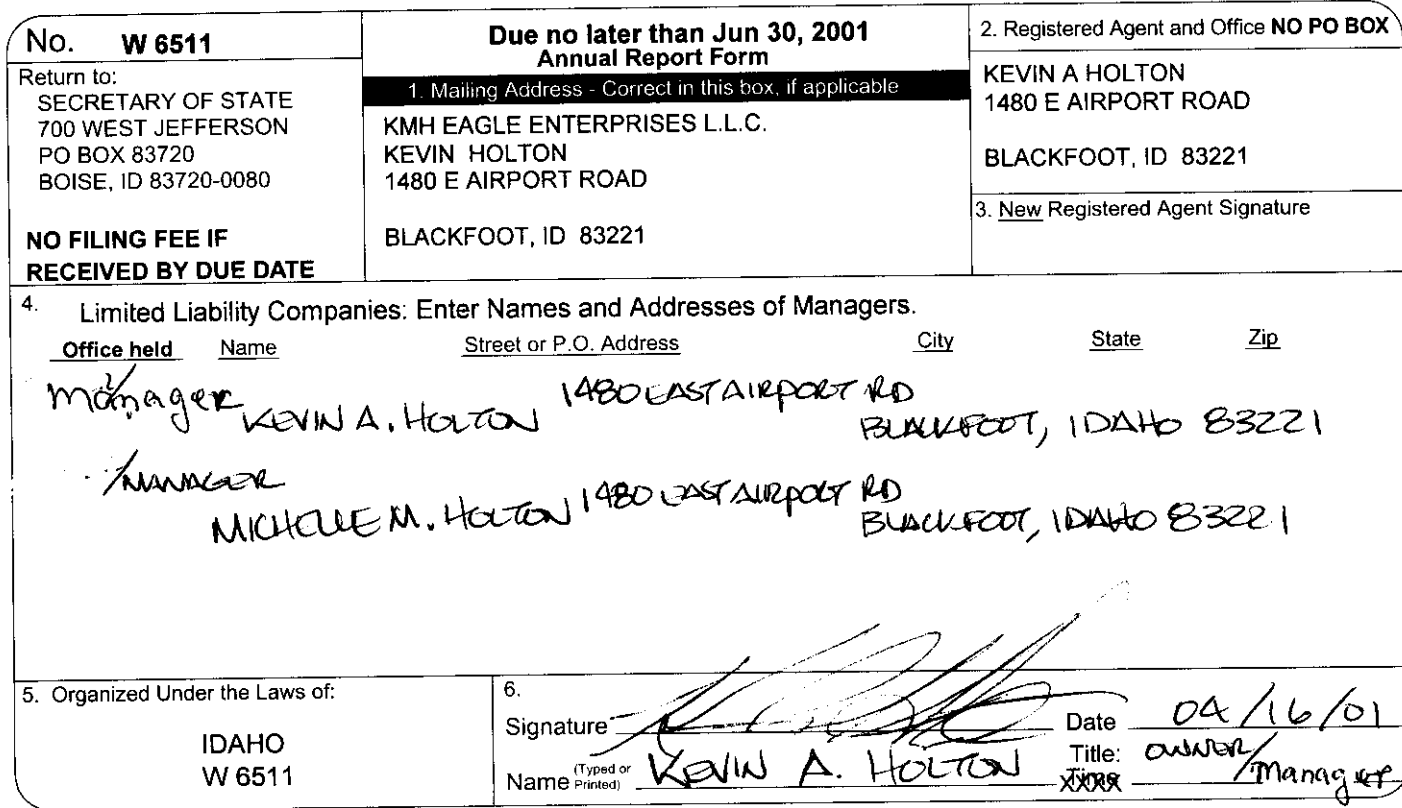 No. W 6511
Return to:
SECRETARY OF STATE
700 WEST JEFFERSON
PO BOX 83720
BOISE, ID 83720-0080
NO FILING FEE IF
RECEIVED BY DUE DATE
Due no later than Jun 30, 2001
Annual Report Form
1. Mailing Address - Correct in this box, if applicable
KMH EAGLE ENTERPRISES L.L.C.
KEVIN HOLTON
1480 E AIRPORT ROAD
BLACKFOOT, ID 83221
2. Registered Agent and Office NO PO BOX
KEVIN A HOLTON
1480 E AIRPORT ROAD
BLACKFOOT, ID 83221
3. New Registered Agent Signature
4. Limited Liability Companies: Enter Names and Addresses of Managers.
Office held Name Street or P.O. Address City State Zip
Manager KEVIN A. HOLTON 1480 EAST AIRPORT RD
BLACKFOOT, IDAHO 83221
/MANAGER
MICHELLE M. HOLTON 1480 EAST AIRPORT RD
BLACKFOOT, IDAHO 83221
5. Organized Under the Laws of:
IDAHO
W 6511
6.
Signature Date 04/16/01
Name (Typed or Printed) KEVIN A. HOLTON Title: OWNER/Manager